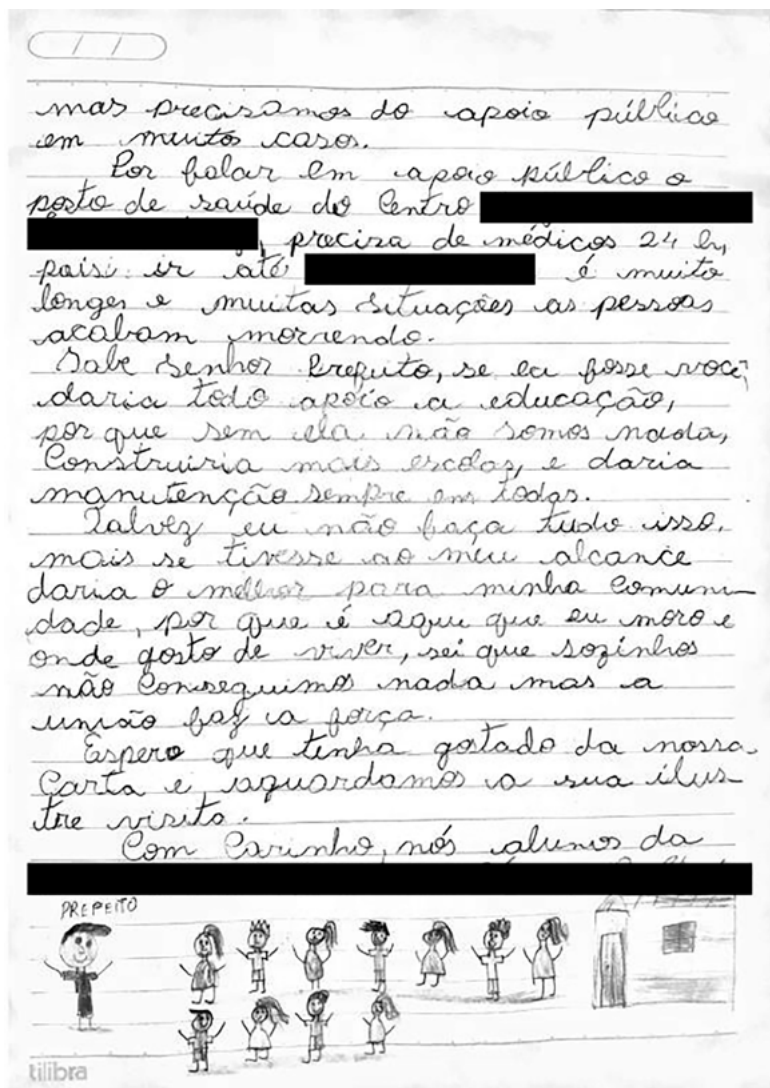 / /
mas precisamos do apoio público
em muitos casos.
Por falar em apoio público o
posto de saúde do Centro
, precisa de médicos 24 h,
poisi ir até é muito
longes e muitas situações as pessoas
acabam morrendo.
Sabe Senhor Prefeito, se eu fosse você,
daria todo apoio a educação,
por que sem ela não somos nada,
Construiria mais escolas, e daria
manutenção sempre em todas.
Talvez eu não faça tudo isso,
mais se tivesse ao meu alcance
daria o melhor para minha Comuni-
dade, por que é aqui que eu moro e
onde gosto de viver, sei que sozinhos
não Conseguimos nada mas a
união faz a força.
Espero que tenha gostado da nossa
Carta e aguardamos a sua ilus-
tre visita.
Com Carinho, nós alunos da
PREFEITO
tilibra